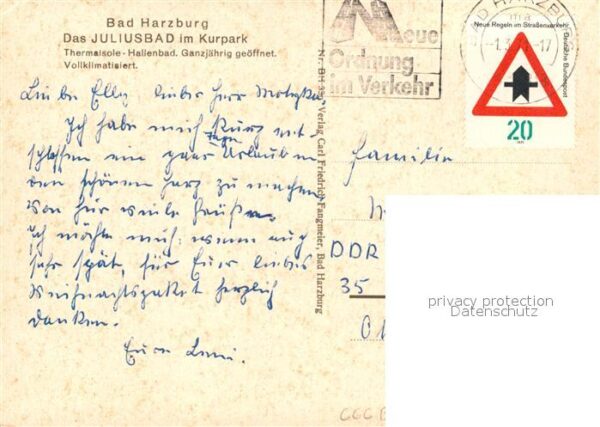 Bad Harzburg
Das JULIUSBAD im Kurpark
Thermalsole-Hallenbad. Ganzjährig geöffnet.
Vollklimatisiert.
Neue
Ordnung
im Verkehr
BAD HARZB
-1.3. -17
Neue Regeln im Straßenverkehr
Deutsche Bundespost
20
Verlag Carl Friedrich Fangmeier, Bad Harzburg
Liebe Elly, lieber Herr
Ich habe mich kurz ent-
schlossen ein paar Tage Urlaub in
den schönen Harz zu machen
Von hier viele Grüße.
Ich möchte mich, wenn auch
sehr spät, für Euer liebes
Weihnachtspaket herzlich
danken.
Eure
Familie
DDR
35
privacy protection
Datenschutz